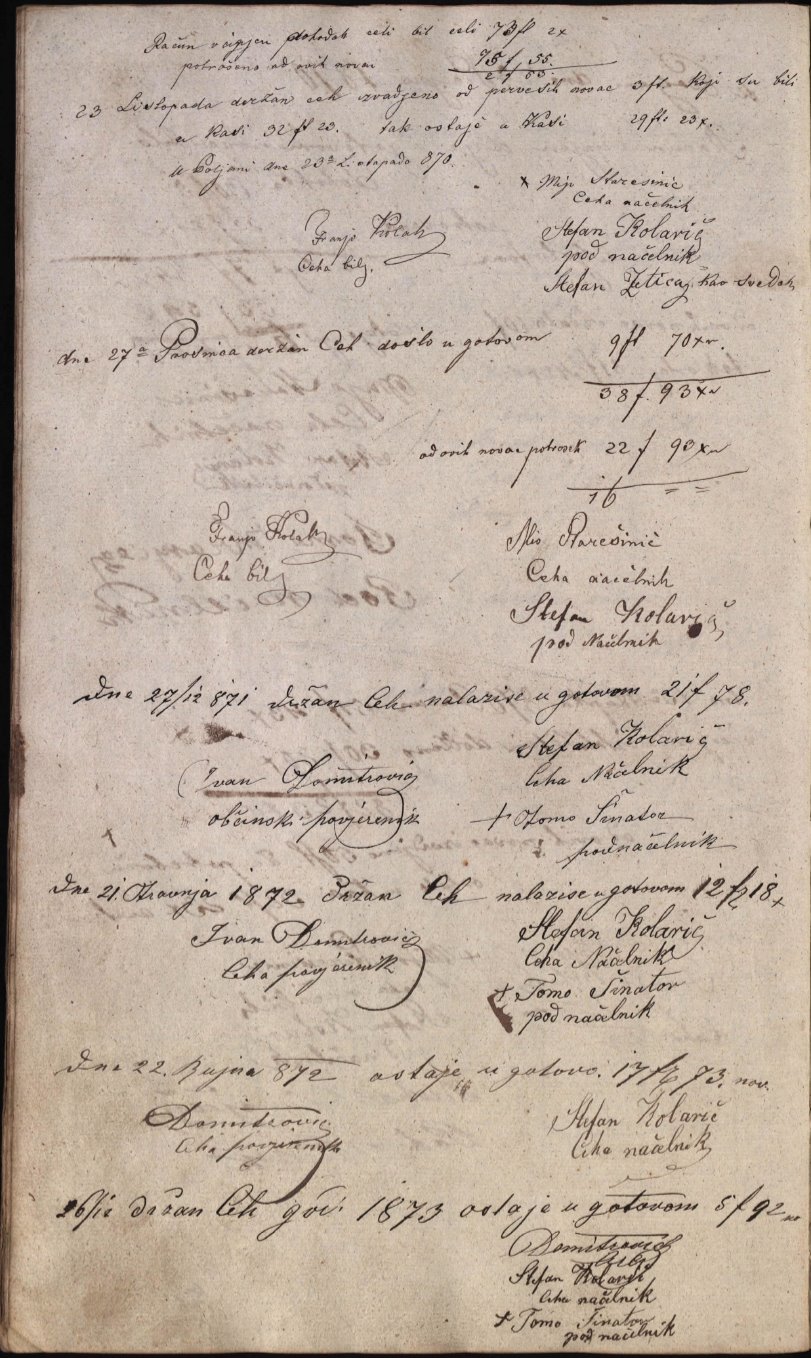 Račun celi bit celi 73 fl 2x
potrošeno od ovih novac 75 f 55.
2 f 53
23 Listopada deržan ceh izvadjeno od perveših novac 3 ft koji su bili
u kasi 32 ft 23. tak ostaje u Kasi 29 ft 23x.
U Poljani dne 23a Listopada 870.
x Mijo Staresinic
Ceha načelnik
Franjo Kolak
Ceha bilj.
Stefan Kolarič
pod načelnik
Stefan Kao svedok
dne 27a Prosinca deržan Ceh došlo u gotovom 9 ft 70xr.
38 f. 93xr
od ovih novac potrosek 22 f 93xr
16 = =
Franjo Kolak
Ceha bilj
Mio Starešinič
Ceha načelnik
Stefan Kolarič
pod Načelnik
Dne 27/12 871 držan Ceh nalazise u gotovom 21 f 78.
Stefan Kolarič
Ceha Načelnik
Ivan Domitrović
občinski povjerenik
+ Tomo Šinator
podnačelnik
Dne 21 Travnja 1872 Držan Ceh nalazise u gotovom 12 f 18x
Ivan Domitrović
Ceha povjerenik
Stefan Kolarič
Ceha Načelnik
+ Tomo Šinator
podnačelnik
Dne 22. Rujna 872 ostaje u gotovo. 17 f 73. nov.
Domitrović
Ceha povjerenik
Stefan Kolarič
Ceha načelnik
26/12 držan Ceh god. 1873 ostaje u gotovom 5 f 92 nov
Domitrović
Stefan Kolarič
Ceha načelnik
+ Tomo Šinator
pod načelnik